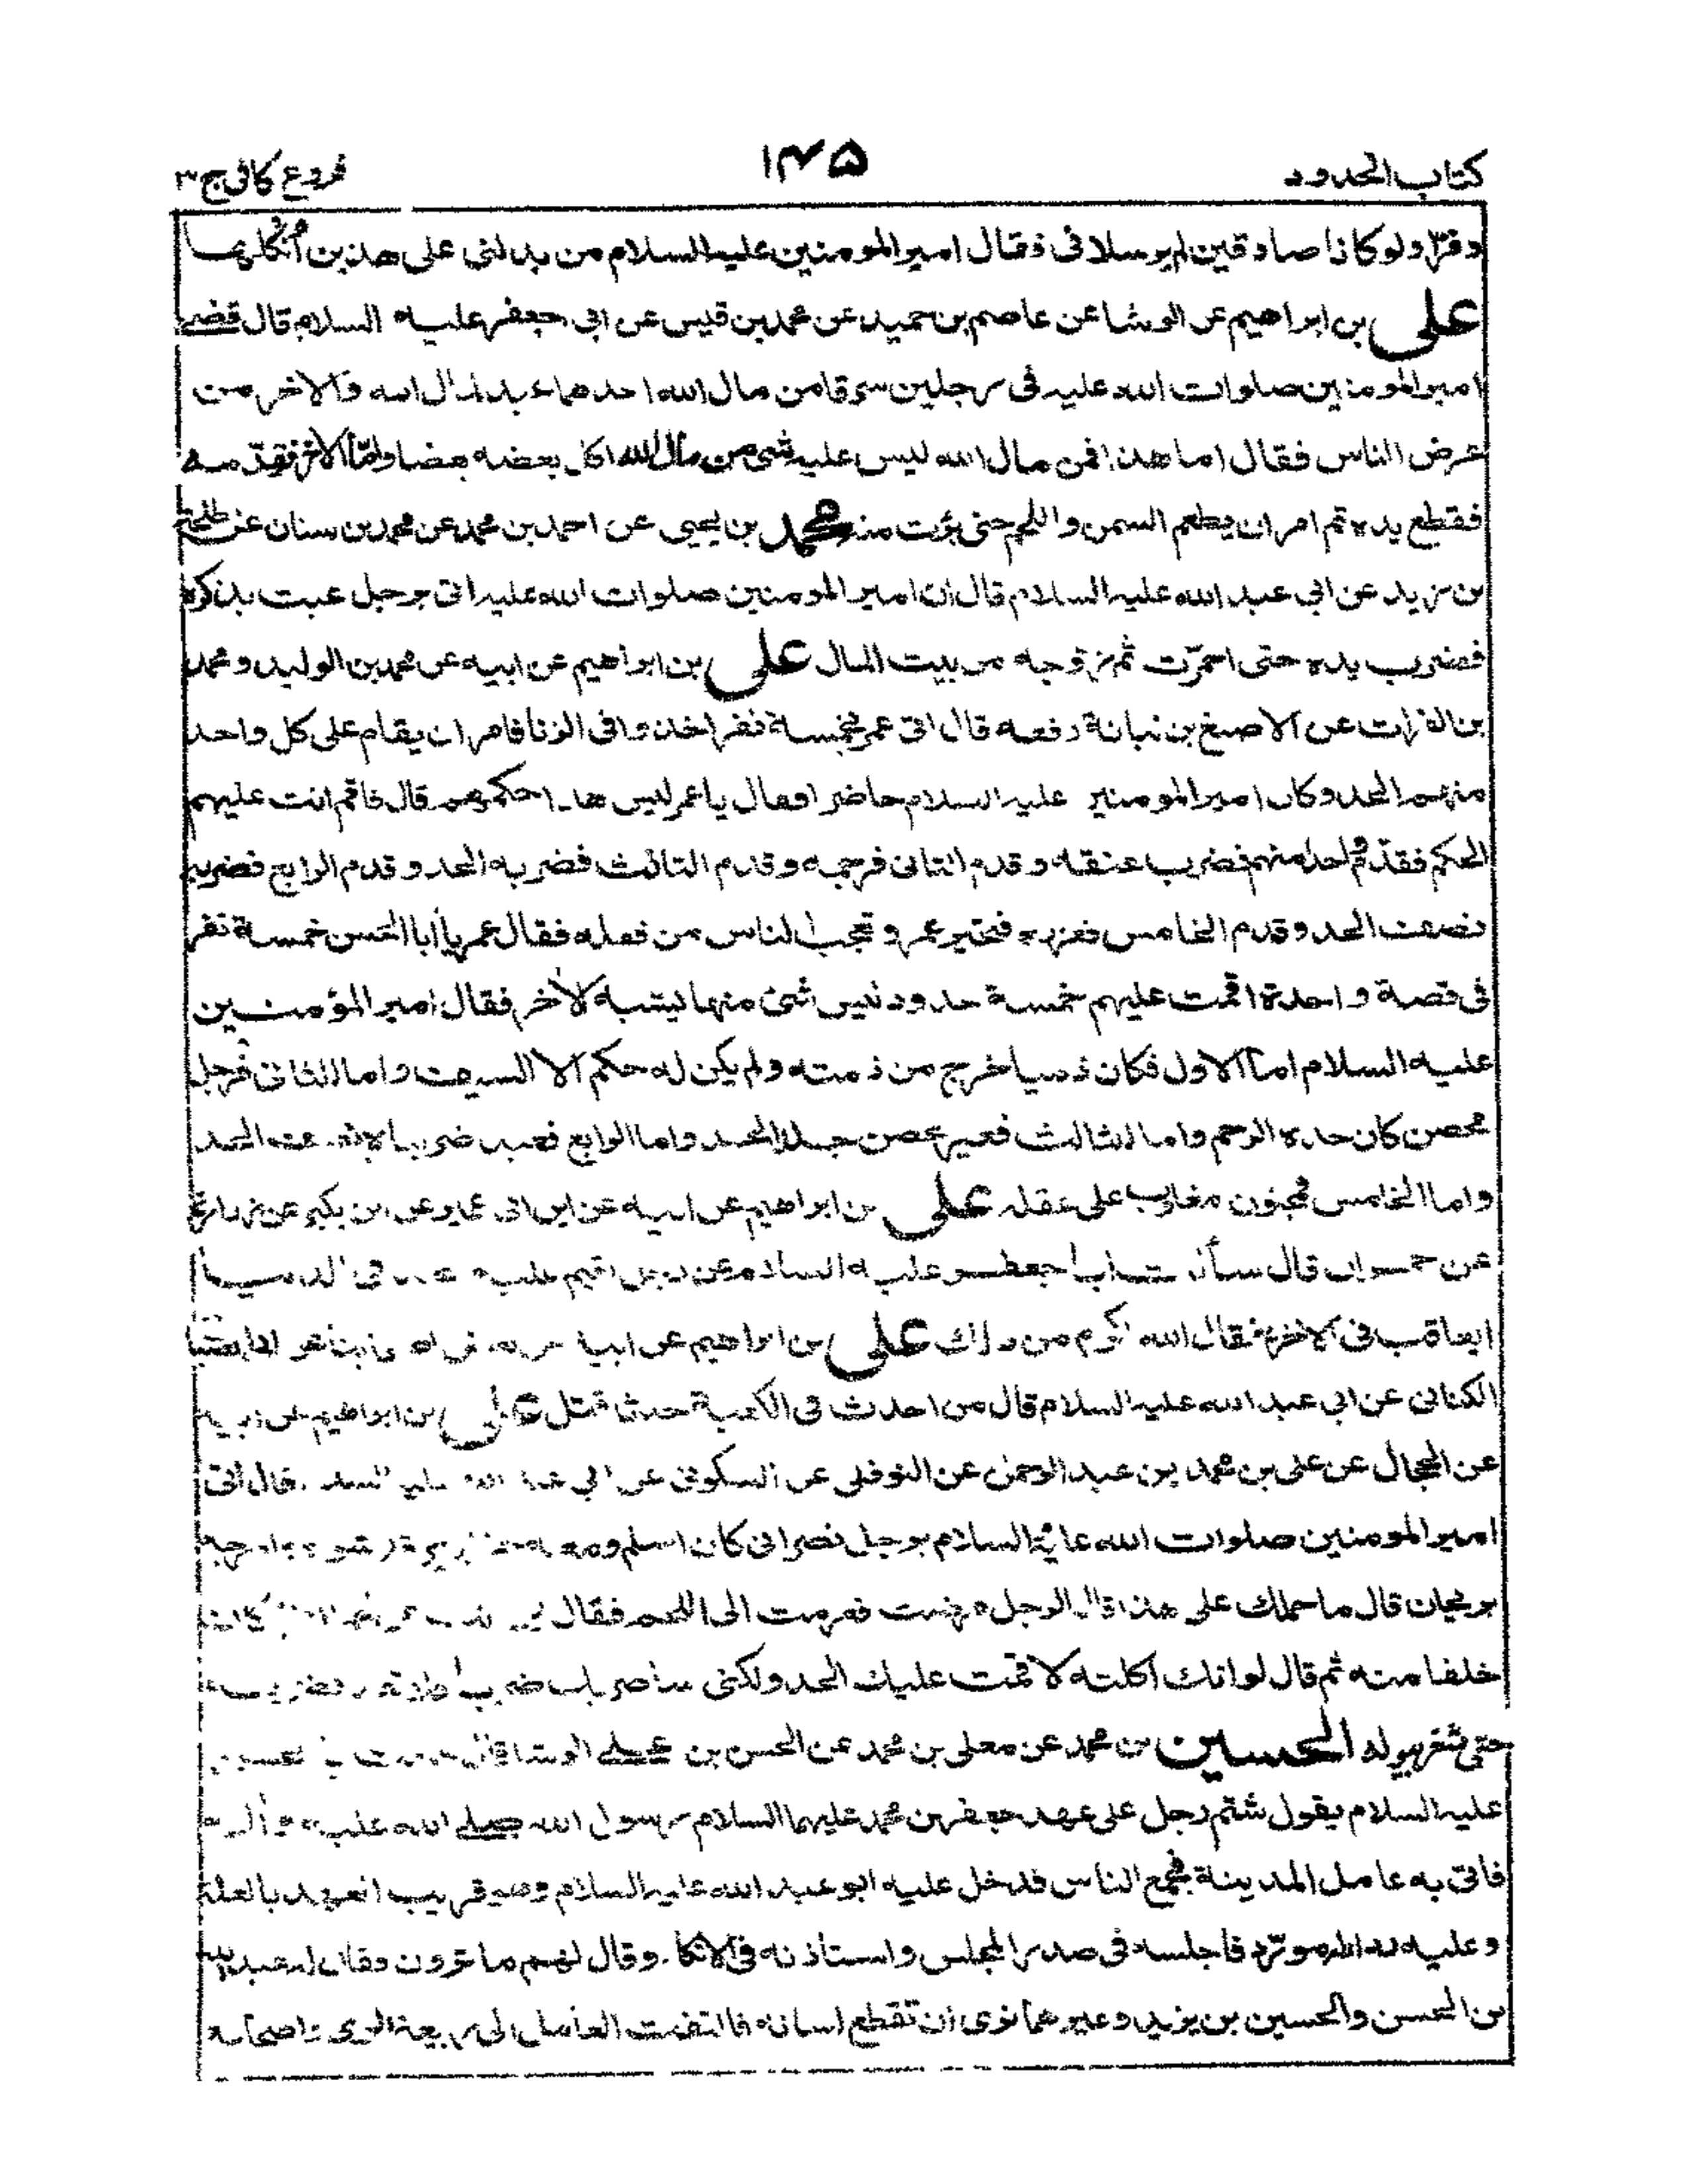 كتاب الحدود ١٤٥ فروع كافى ج ٣
وفرّا ولو كانا صادقين لم يرسلانى فقال امير المومنين عليه السلام من يدلنى على هذين أنكلهما
على بن ابراهيم عن الوشا عن عاصم بن حميد عن محمد بن قيس عن ابى جعفر عليه السلام قال قضى
امير المومنين صلوات الله عليه فى رجلين سرقا من مال الله احدهما عبد لمال الله والاخر من
عرض الناس فقال اما هذا فمن مال الله ليس عليه شئ من مال الله اكل بعضه بعضا وامّا الاخر فقدّمه
فقطع يده ثم امر ان يطعم السمن واللحم حتى برئت منه محمد بن يحيى عن احمد بن محمد عن محمد بن سنان عن طلحة
بن زيد عن ابى عبد الله عليه السلام قال ان امير المومنين صلوات الله عليه اتى برجل عبث بذكره
فضرب يده حتى احمرّت ثم زوجه من بيت المال على بن ابراهيم عن ابيه عن محمد بن الوليد ومحمد
بن الفرات عن الاصبغ بن نباتة رفعه قال اتى عمر بخمسة نفر اخذوا فى الزنا فامر ان يقام على كل واحد
منهم الحد وكان امير المومنين عليه السلام حاضرا فقال يا عمر ليس هذا حكمهم قال فاقم انت عليهم
الحكم فقدّم واحدا منهم فضرب عنقه وقدم الثانى فرجمه وقدم الثالث فضربه الحد وقدم الرابع فضربه
نصف الحد وقدم الخامس فعزره فتحير عمر وتعجب الناس من فعله فقال عمر يا أبا الحسن خمسة نفر
فى قصة واحدة اقمت عليهم خمسة حدود ليس شئ منها يشبه الاخر فقال امير المؤمنين
عليه السلام اما الاول فكان ذميا خرج من ذمته ولم يكن له حكم الا السيف واما الثانى فرجل
محصن كان حده الرجم واما الثالث فغير محصن جلد الحد واما الرابع فعبد ضربناه نصف الحد
واما الخامس فمجنون مغلوب على عقله على بن ابراهيم عن ابيه عن ابن ابى عمير عن ابن بكير عن زرارة
عن حمران قال سألت ابا جعفر عليه السلام عن رجل اقيم عليه الحد فى الدنيا
ايعاقب فى الاخرة فقال الله اكرم من ذلك على بن ابراهيم عن ابيه
الكنانى عن ابى عبد الله عليه السلام قال من احدث فى الكعبة حدثا قتل على بن ابراهيم عن ابيه
عن الحجال عن على بن محمد بن عبد الرحمن عن النوفلى عن السكونى عن ابى عبد الله عليه السلام قال أتى
امير المومنين صلوات الله عليه السلام برجل نصرانى كان اسلم ومعه خنزير قد شواه وادرجه
بريحان قال ما حملك على هذا قال الرجل مرضت فقرمت الى اللحم فقال
خلفا منه ثم قال لو انك اكلته لاقمت عليك الحد ولكنى ساضربك ضربا فضربه
حتى شغر ببوله الحسين بن محمد عن معلى بن محمد عن الحسن بن على الوشا قال
عليه السلام يقول شتم رجل على عهد جعفر بن محمد عليهما السلام رسول الله صلى الله عليه وآله
فاتى به عامل المدينة فجمع الناس فدخل عليه ابو عبد الله عليه السلام وهو قريب العهد بالعلة
وعليه رداء له مورّد فاجلسه فى صدر المجلس واستاذنه فى الاتكا وقال لهم ما ترون فقال له عبد الله
بن الحسن والحسين بن يزيد وغيرهما نرى ان تقطع لسانه فالتفت العامل الى ربيعة الرى واصحابه